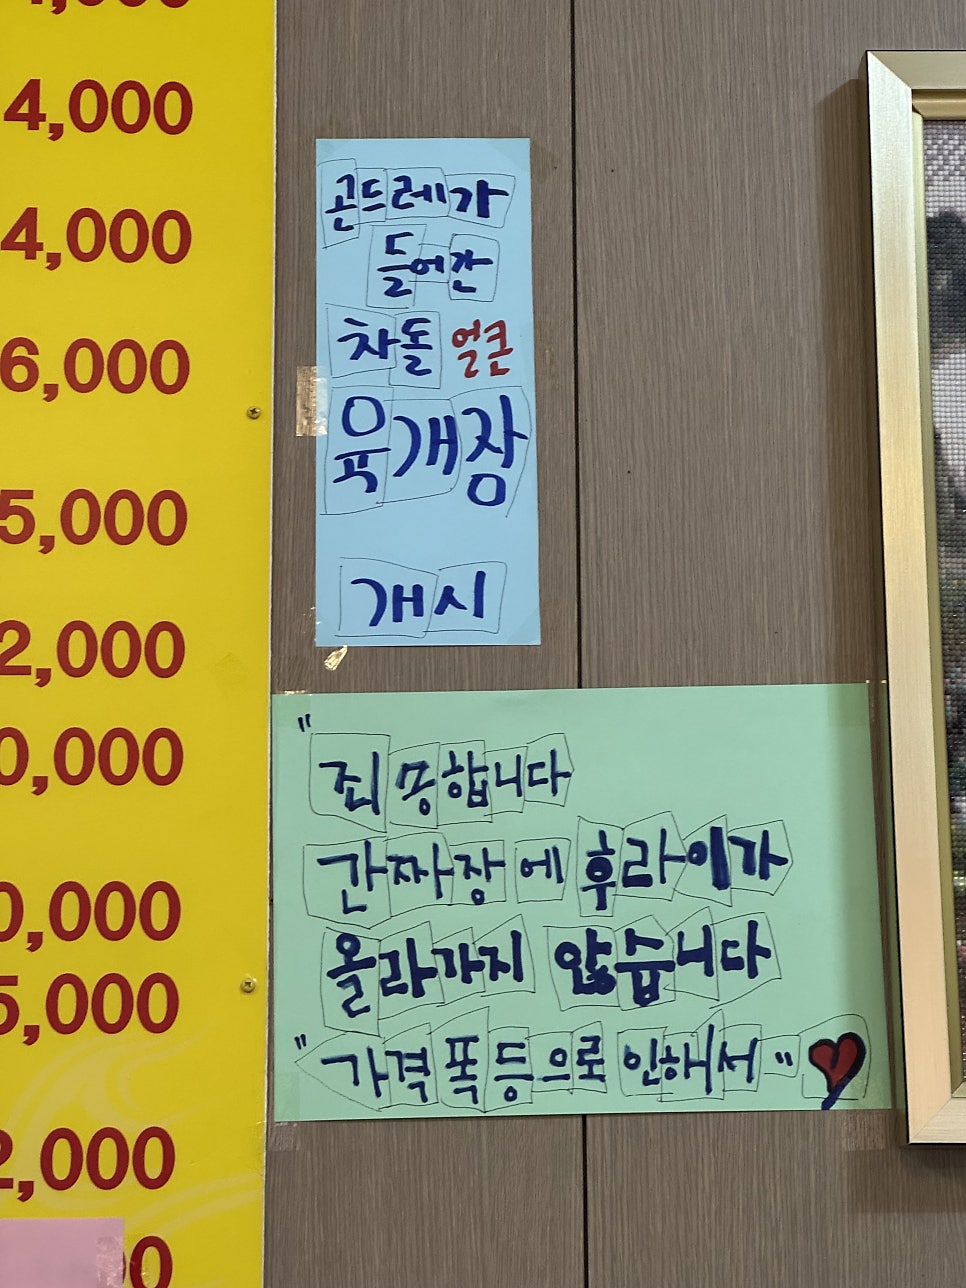 4,000
4,000
6,000
5,000
2,000
0,000
0,000
5,000
2,000
곤드레가
들어간
차돌 얼큰
육개장
개시
"
죄송합니다
간짜장에 후라이가
올라가지 않습니다
"가격폭등으로 인해서"